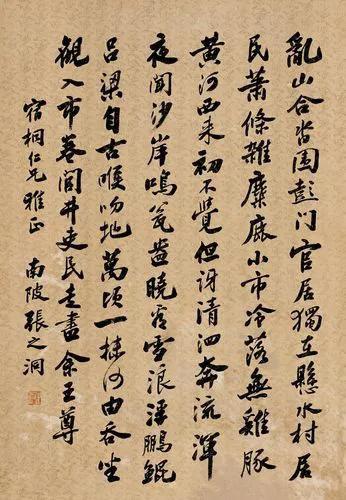 亂山合沓圍彭門官居獨在懸水村居
民蕭條雜麋鹿小市冷落無雞豚
黃河西來初不覺但訝清泗奔流渾
夜聞沙岸鳴瓮盎曉看雪浪浮鵬鯤
呂梁自古喉吻地萬頃一抹何由吞坐
觀入市卷閭井吏民走盡余王尊
宿桐仁兄雅正
南陂張之洞